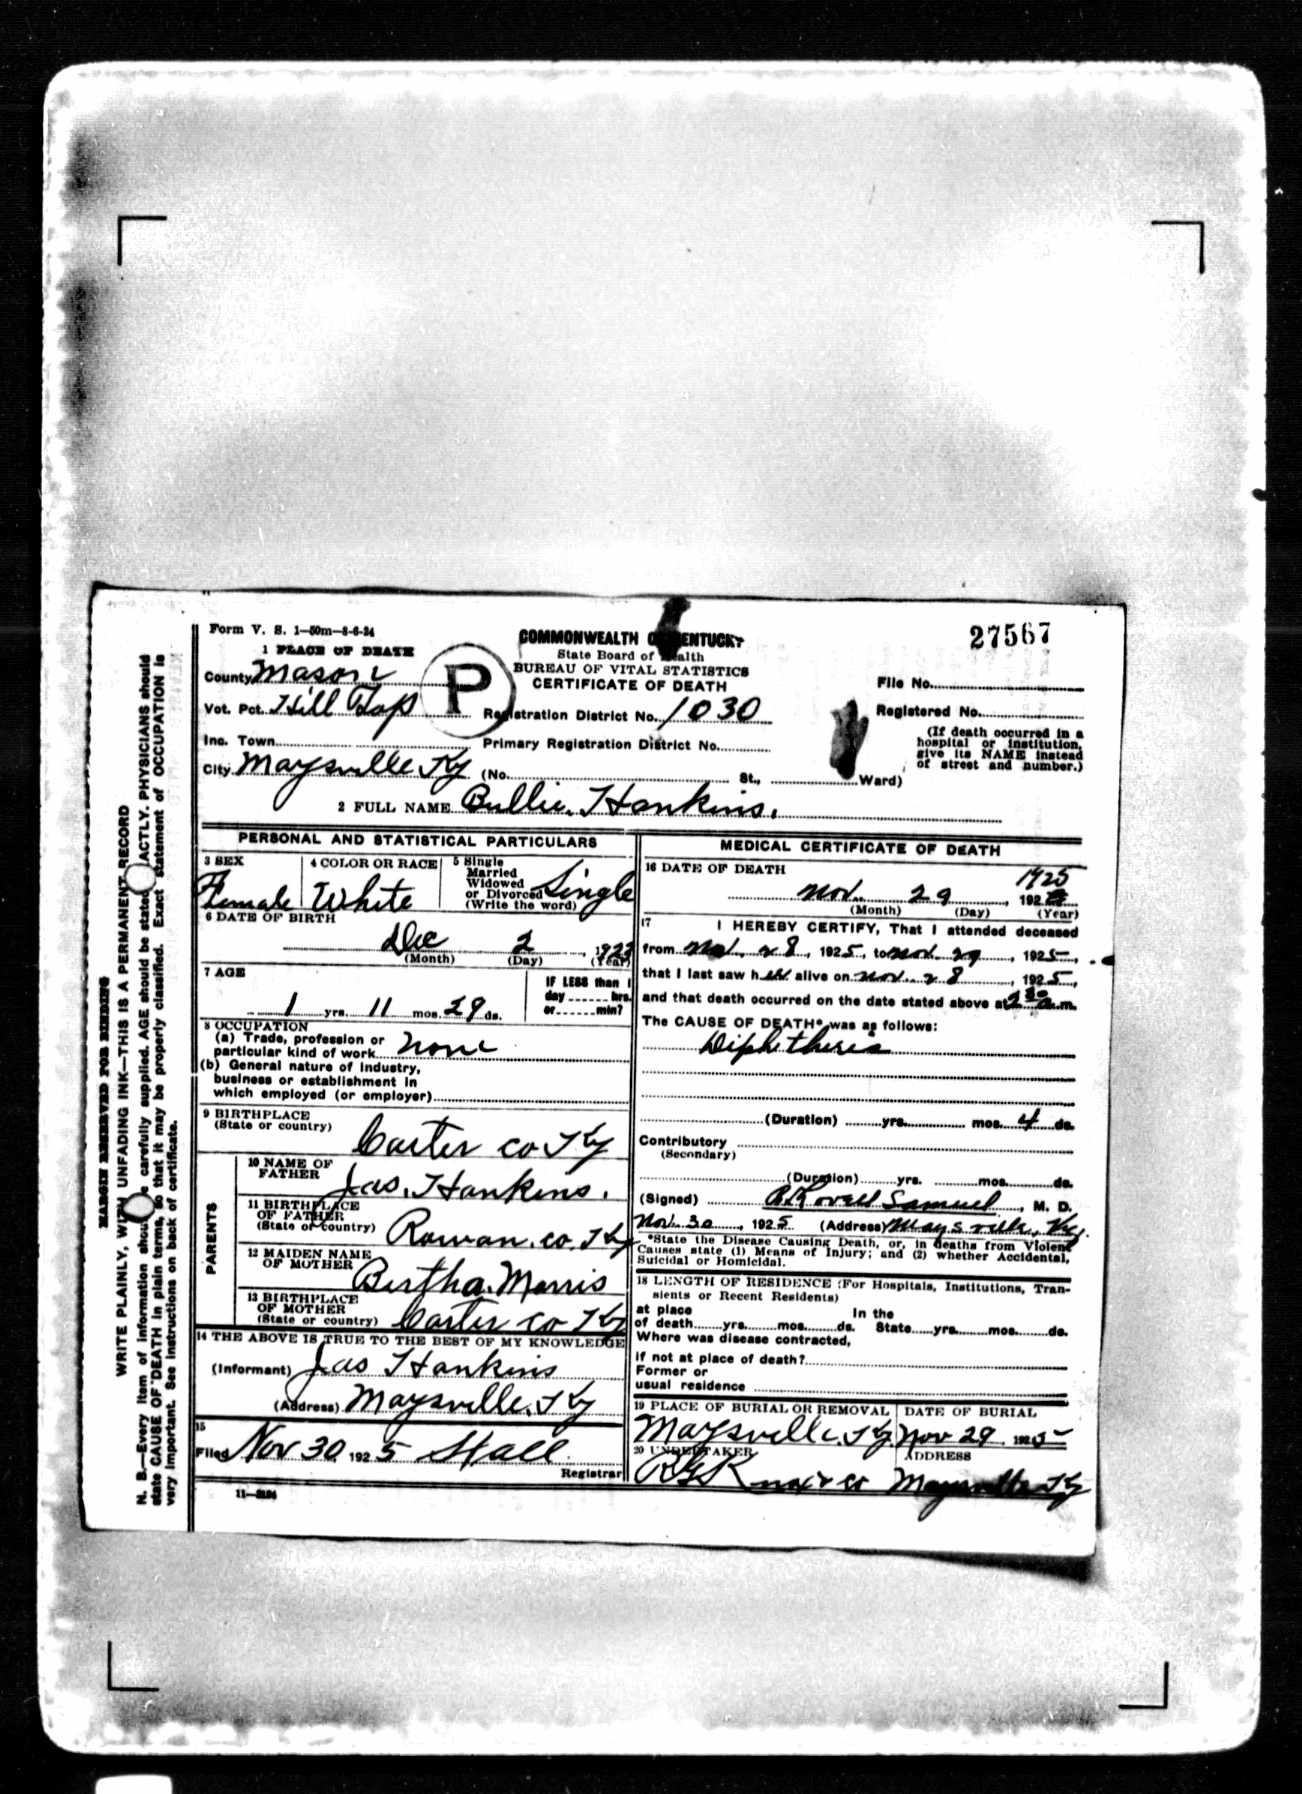 Form V. S. 1—50m—8-6-24
27567
1 PLACE OF DEATH
COMMONWEALTH OF KENTUCKY
State Board of Health
BUREAU OF VITAL STATISTICS
CERTIFICATE OF DEATH
P
County Mason
Vot. Pct. Hill Top
Registration District No. 1030
File No.
Registered No.
Inc. Town
Primary Registration District No.
City Maysville Ky (No. St., Ward)
(If death occurred in a
hospital or institution,
give its NAME instead
of street and number.)
2 FULL NAME Bullie Hankins.
PERSONAL AND STATISTICAL PARTICULARS
3 SEX
Female
4 COLOR OR RACE
White
5 Single
Married
Widowed
or Divorced
(Write the word)
Single
6 DATE OF BIRTH
Dec 2, 1923
(Month) (Day) (Year)
7 AGE
1 yrs. 11 mos. 29 ds.
IF LESS than 1
day hrs.
or min?
8 OCCUPATION
(a) Trade, profession or
particular kind of work none
(b) General nature of industry,
business or establishment in
which employed (or employer)
9 BIRTHPLACE
(State or country)
Carter co Ky
PARENTS
10 NAME OF
FATHER
Jas. Hankins.
11 BIRTHPLACE
OF FATHER
(State or country)
Rowan. co. Ky
12 MAIDEN NAME
OF MOTHER
Bertha. Morris
13 BIRTHPLACE
OF MOTHER
(State or country)
Carter co Ky
14 THE ABOVE IS TRUE TO THE BEST OF MY KNOWLEDGE
(Informant) Jas Hankins
(Address) Maysville, Ky
15
Filed Nov 30 1925 Hall
Registrar
11—3194
MEDICAL CERTIFICATE OF DEATH
16 DATE OF DEATH
1925
Nov. 29, 192
(Month) (Day) (Year)
17
I HEREBY CERTIFY, That I attended deceased
from Nov. 28, 1925, to Nov. 29, 1925,
that I last saw her alive on Nov. 28, 1925,
and that death occurred on the date stated above at 2 30 a.m.
The CAUSE OF DEATH* was as follows:
Diphtheria
(Duration) yrs. mos. 4 ds.
Contributory
(Secondary)
(Duration) yrs. mos. ds.
(Signed) Samuel, M. D.
Nov. 30, 1925 (Address) Maysville, Ky.
*State the Disease Causing Death, or, in deaths from Violent
Causes state (1) Means of Injury; and (2) whether Accidental,
Suicidal or Homicidal.
18 LENGTH OF RESIDENCE (For Hospitals, Institutions, Tran-
sients or Recent Residents)
at place In the
of death yrs. mos. ds. State yrs. mos. ds.
Where was disease contracted,
if not at place of death?
Former or
usual residence
19 PLACE OF BURIAL OR REMOVAL
Maysville, Ky.
DATE OF BURIAL
Nov 29 1925
20 UNDERTAKER
R G Knox & co
ADDRESS
Maysville Ky
MARGIN RESERVED FOR BINDING
WRITE PLAINLY, WITH UNFADING INK—THIS IS A PERMANENT RECORD
N. B.—Every item of information should be carefully supplied. AGE should be stated EXACTLY. PHYSICIANS should
state CAUSE OF DEATH in plain terms, so that it may be properly classified. Exact statement of OCCUPATION is
very important. See instructions on back of certificate.